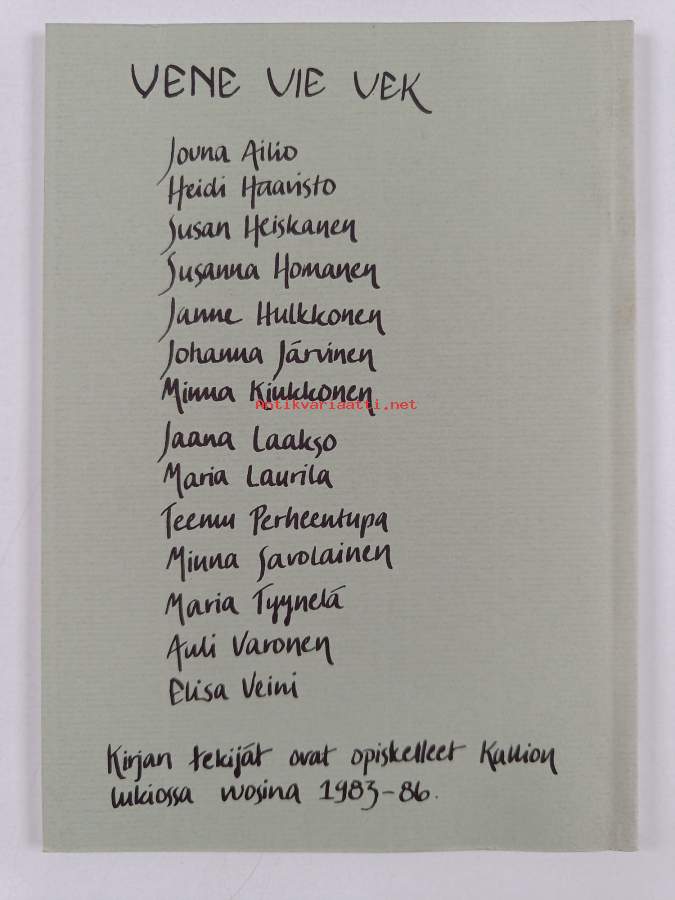 VENE VIE VEK
Jouna Ailio
Heidi Haavisto
Susan Heiskanen
Susanna Homanen
Janne Hulkkonen
Johanna Järvinen
Minna Kiukkonen
Antikvariaatti.net
Jaana Laakso
Maria Laurila
Teemu Perheentupa
Minna Savolainen
Maria Tyynelä
Auli Varonen
Elisa Veini
Kirjan tekijät ovat opiskelleet Kallion
lukiossa vuosina 1983-86.